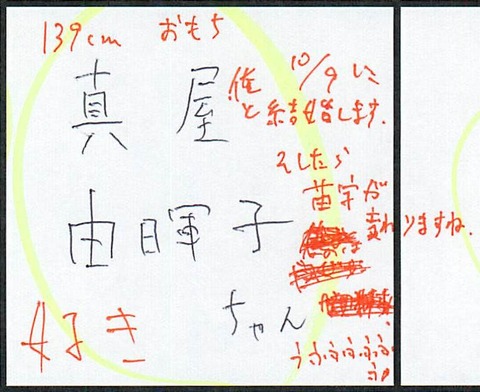 139cm おもち
真屋
俺と
10/9に
結婚します.
そしたら
苗字が
変わりますね.
由暉子
ちゃん
好き
うふふふふふふ